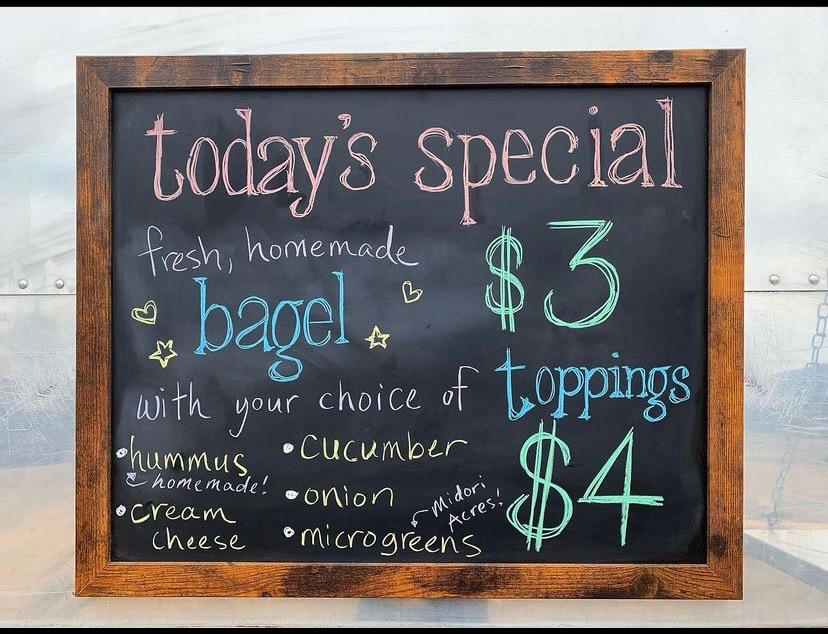 today's special
fresh, homemade
bagel
$3
with your choice of toppings
• hummus
homemade!
• cream
cheese
• cucumber
• onion
• microgreens
Midori
Acres!
$4